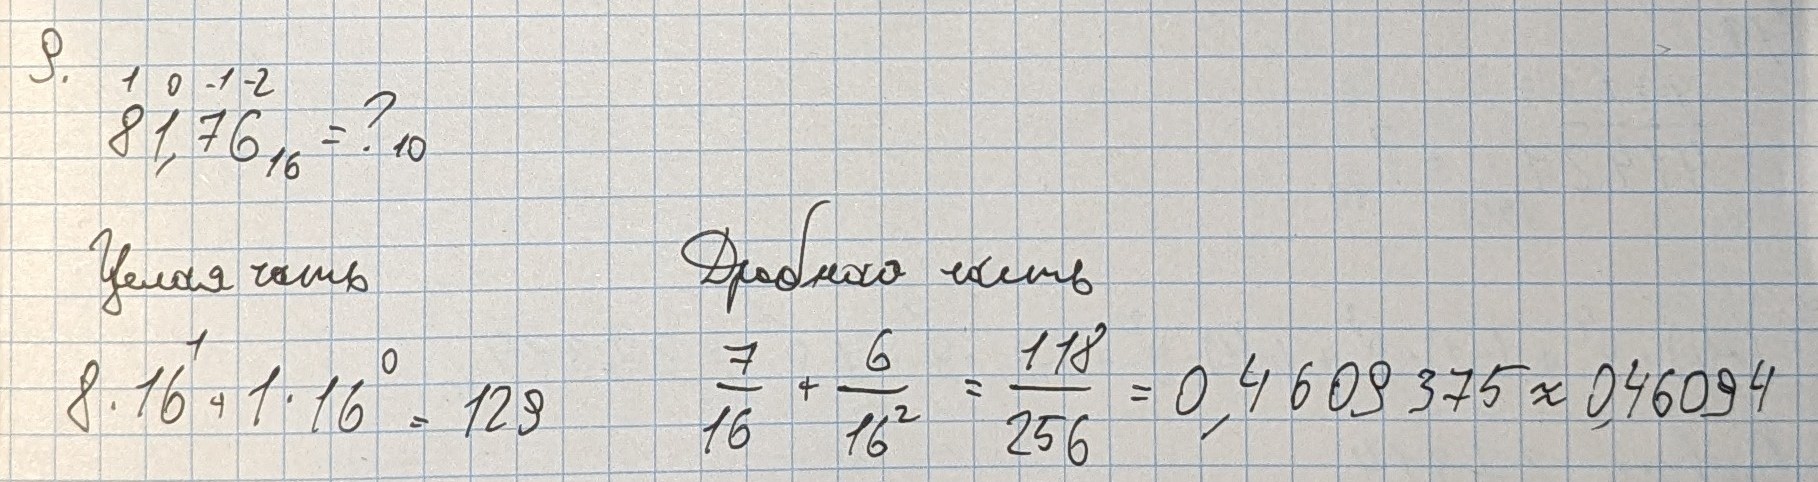 9.
1 0 -1 -2
81,76₁₆ = ?₁₀
Целая часть
8·16¹ + 1·16⁰ = 129
Дробная часть
7/16 + 6/16² = 118/256 = 0,4609375 ≈ 0,46094